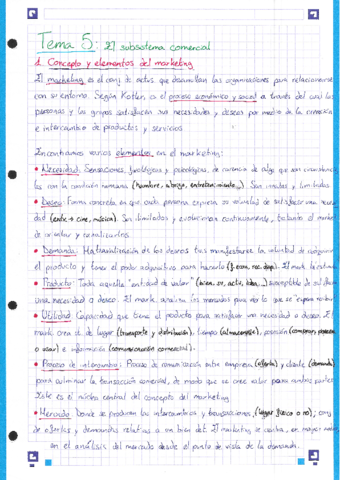 Tema 5: El subsistema comercial
1. Concepto y elementos del marketing
El marketing es el conj. de activ. que desarrollan las organizaciones para relacionarse
con su entorno. Según Kotler, es el proceso económico y social a través del cual las
personas y los grupos satisfacen sus necesidades y deseos por medio de la creación
e intercambio de productos y servicios
Encontramos varios elementos en el marketing:
• Necesidad: Sensaciones, fisiológicas y psicológicas, de carencia de algo que son
les con la condición humana (hambre, abrigo, entretenimiento...). Son innatas y limitadas
• Deseo: Forma concreta en que cada persona expresa su voluntad de satisfacer una nece
dad (entr → cine, música). Son ilimitados y evolucionan continuamente, tratando el market
de orientar y canalizarlos.
• Demanda: Materialización de los deseos tras manifestarse la voluntad de adquirir
el producto y tener el poder adquisitivo para hacerlo
• Producto: Toda aquella "entidad de valor" (bien, sv, activ, idea...) susceptible de satisfacer
una necesidad o deseo. El mark. analiza los mercados para
• Utilidad: Capacidad que tiene el producto para satisfacer una necesidad o deseo. El
mark. crea ut. de lugar (transporte y distribución), tiempo (almacenaje), posesión (comprar,
o usar) e información (comunicación comercial).
• Proceso de intercambio: Proceso de comunicación entre empresa (oferta) y cliente (demanda)
para culminar la transacción comercial, de modo que se cree valor para ambas partes
Este es el núcleo central del concepto de marketing
• Mercado: Donde se producen los intercambios y transacciones, (lugar físico o no); conj
de ofertas y demandas relativas a un bien det. El marketing se centra, en mayor
en el análisis del mercado desde el punto de vista de la demanda.